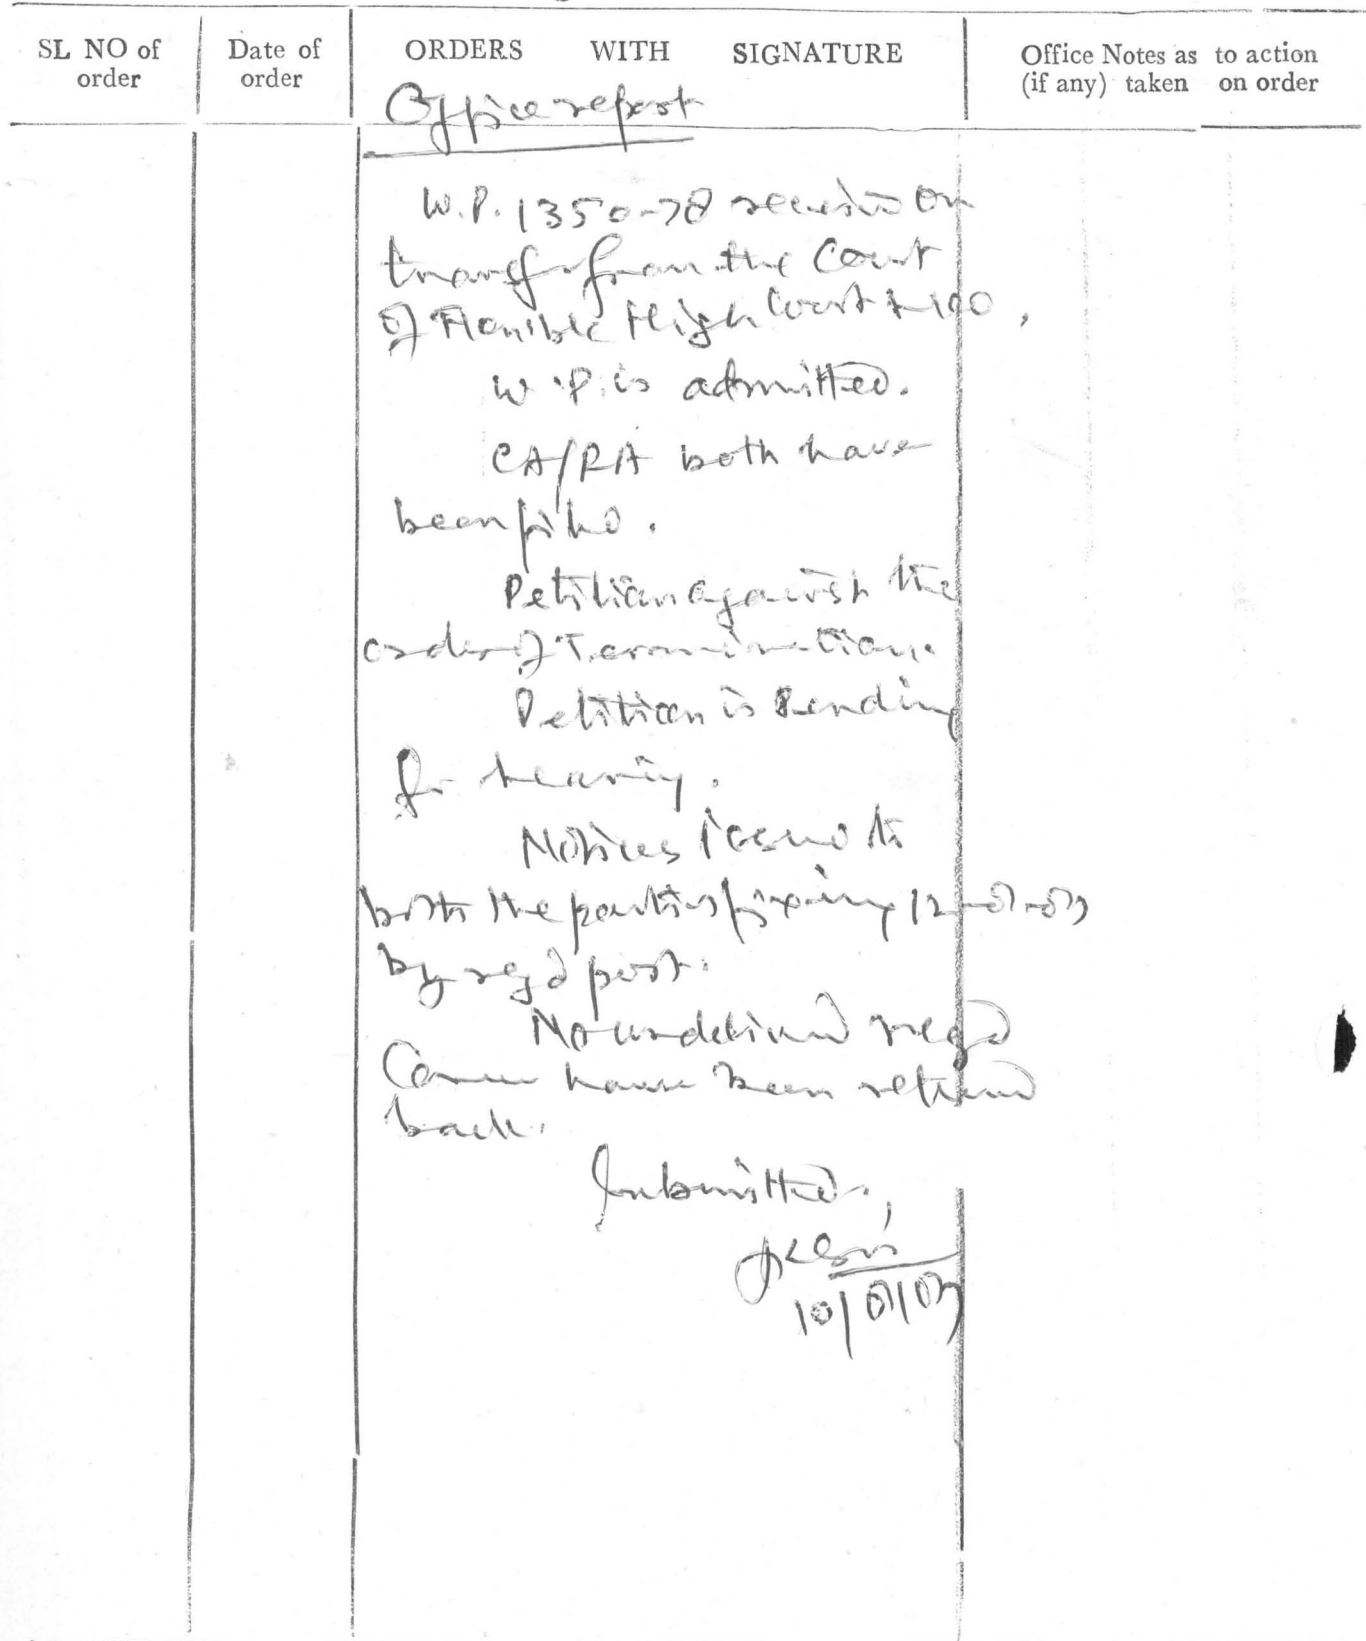 SL NO of order
Date of order
ORDERS WITH SIGNATURE
Office Notes as to action (if any) taken on order
Office report
W.P. 1350-78 received on
transfer from the Court
of Hon'ble High Court
W.P. is admitted.
CA/RA both have
been filed.
Petition against the
order of Termination.
Petition is Pending
for hearing.
Notices issued to
both the parties fixing
by regd post.
No undelivered regd
Cover have been returned
back.
Submitted,